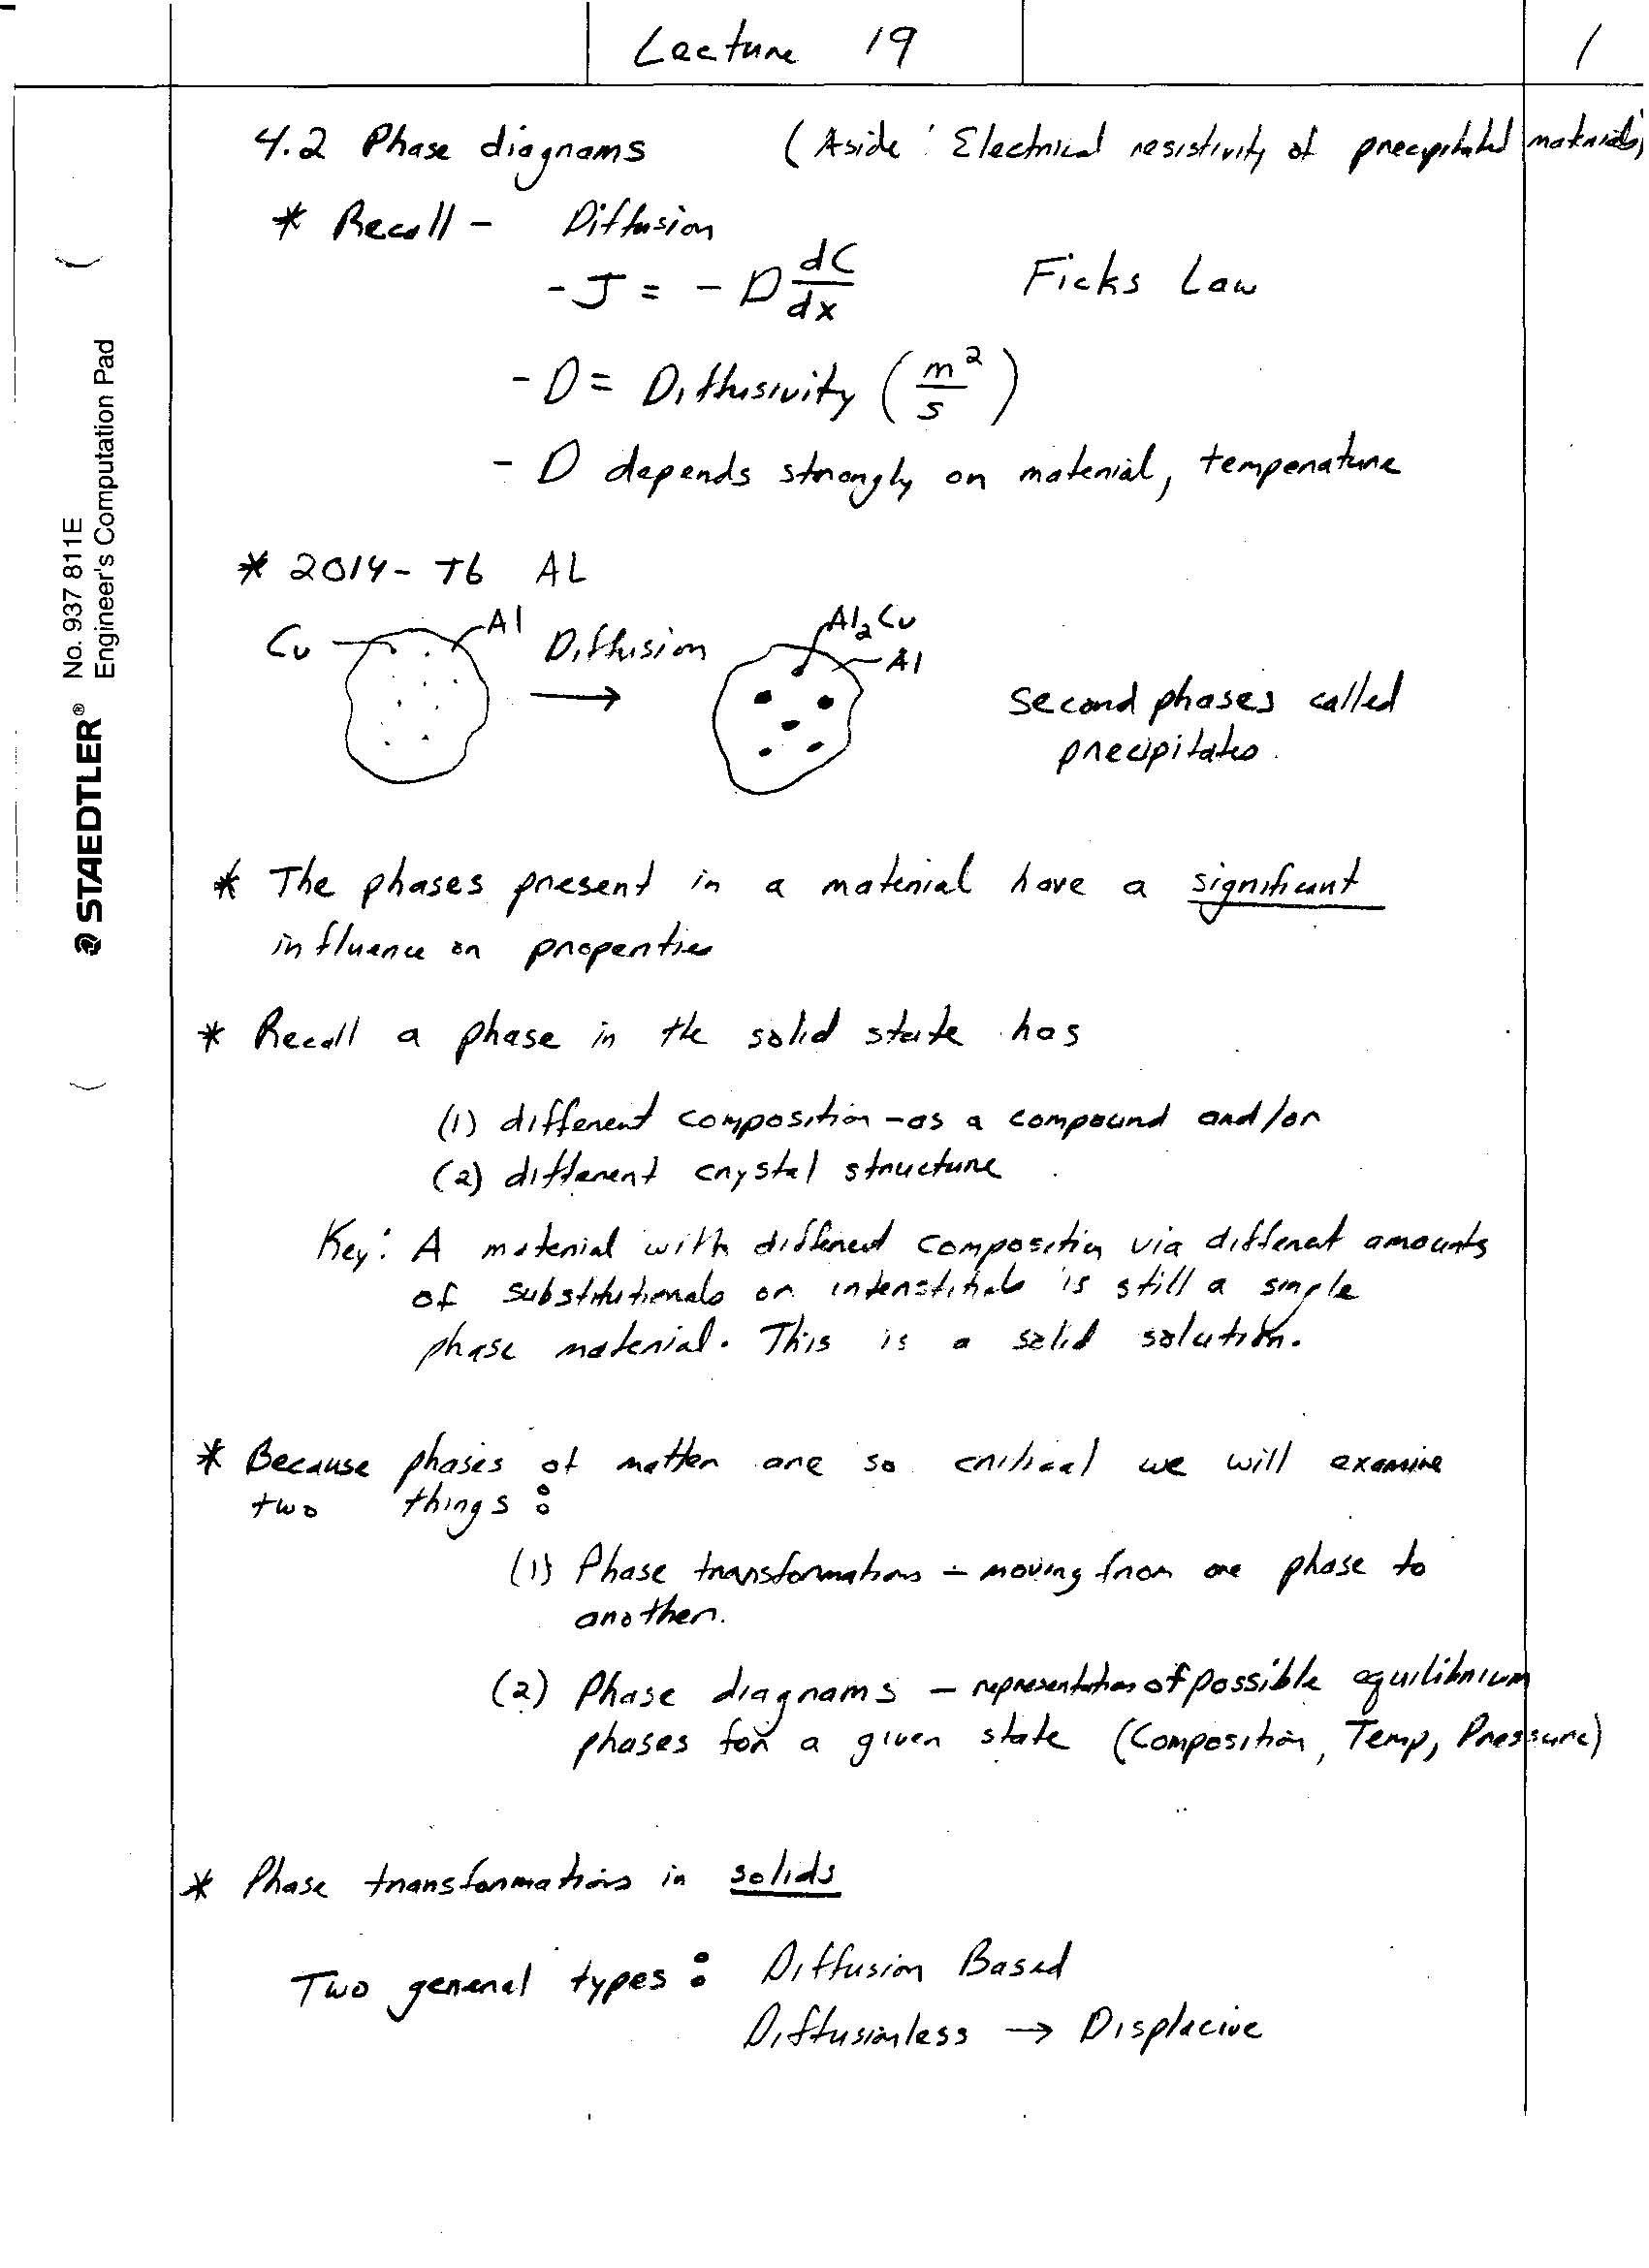 Lecture 19 1
4.2 Phase diagrams (Aside: Electrical resistivity of precipitated materials)
* Recall - Diffusion
- J = - D dC/dx Ficks Law
- D = Diffusivity (m²/s)
- D depends strongly on material, temperature
* 2014-T6 AL
Cu Al Diffusion → Al₂Cu Al
Second phases called
precipitates.
* The phases present in a material have a significant
influence on properties
* Recall a phase in the solid state has
(1) different composition - as a compound and/or
(2) different crystal structure
Key: A material with different composition via different amounts
of substitutionals or interstitials is still a single
phase material. This is a solid solution.
* Because phases of matter are so critical we will examine
two things:
(1) Phase transformations - moving from one phase to
another.
(2) Phase diagrams - representation of possible equilibrium
phases for a given state (Composition, Temp, Pressure)
* Phase transformations in solids
Two general types: Diffusion Based
Diffusionless → Displacive
STAEDTLER® No. 937 811E
Engineer's Computation Pad